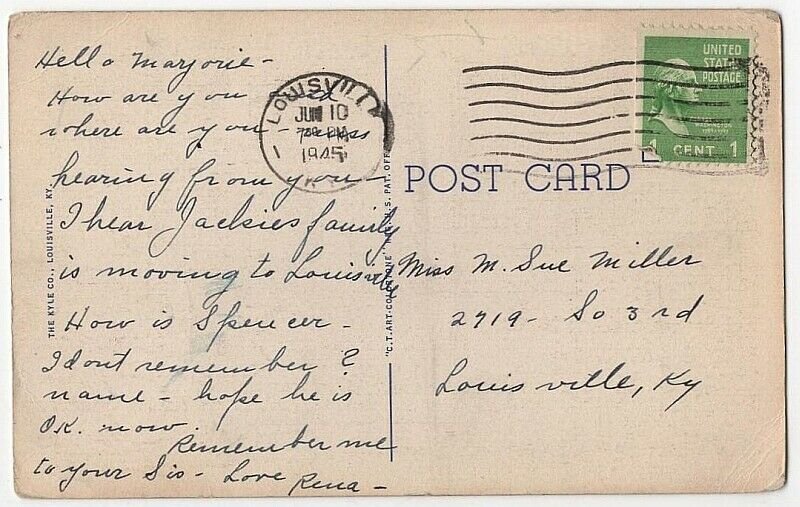 Hello Marjorie -
How are you &
where are you - miss
hearing from you -
I hear Jackies family
is moving to Louisville
How is Spencer -
I dont remember ?
name - hope he is
O.K. now.
Remember me
to your Sis - Love
Rena -
THE KYLE CO., LOUISVILLE, KY.
LOUISVILLE
JUN 10
1945
KY.
"C.T. ART-COLORTONE" REG. U.S. PAT. OFF.
UNITED
STATES
POSTAGE
WASHINGTON
1 CENT 1
POST CARD
Miss M. Sue Miller
2719 - So 3rd
Louisville, Ky